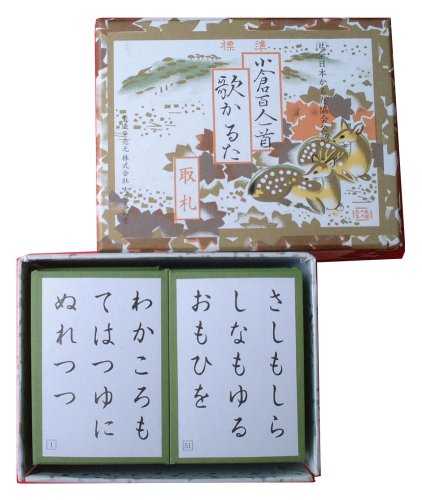 標準
小倉百人一首
歌かるた
取札
さしもしら
しなもゆる
おもひを
51
わかころも
てはつゆに
ぬれつつ
1